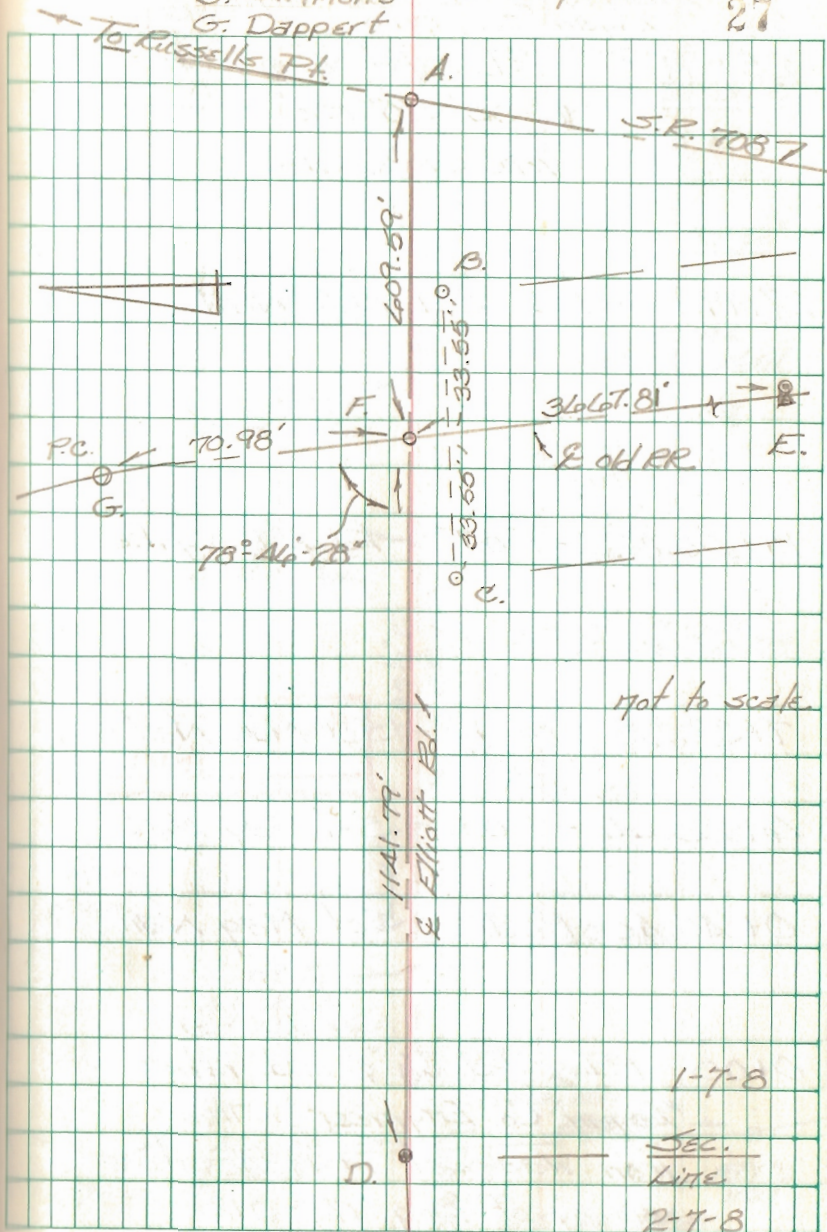 G. Dappert
27
To Russells Pt.
A.
S.R. 708
609.59'
B.
33.55'
3667.81'
F.
70.98'
P.C.
G.
℄ old RR
E.
33.55'
78°-46'-28"
C.
not to scale
1141.79'
℄ Elliott Rd.
1-7-8
Sec.
Line
D.
2-7-8